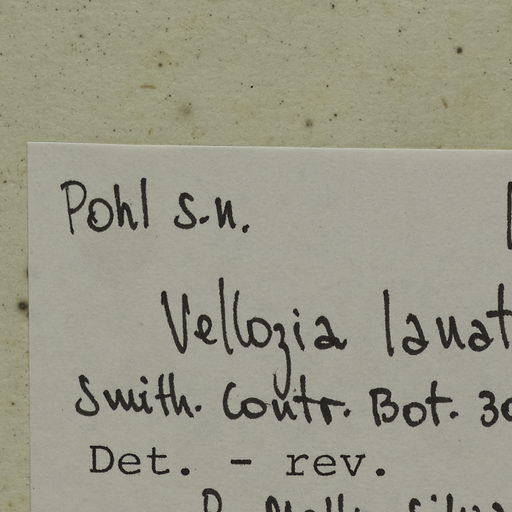 Pohl s.n.
Vellozia lanat
Smith. Contr. Bot. 30
Det. - rev.